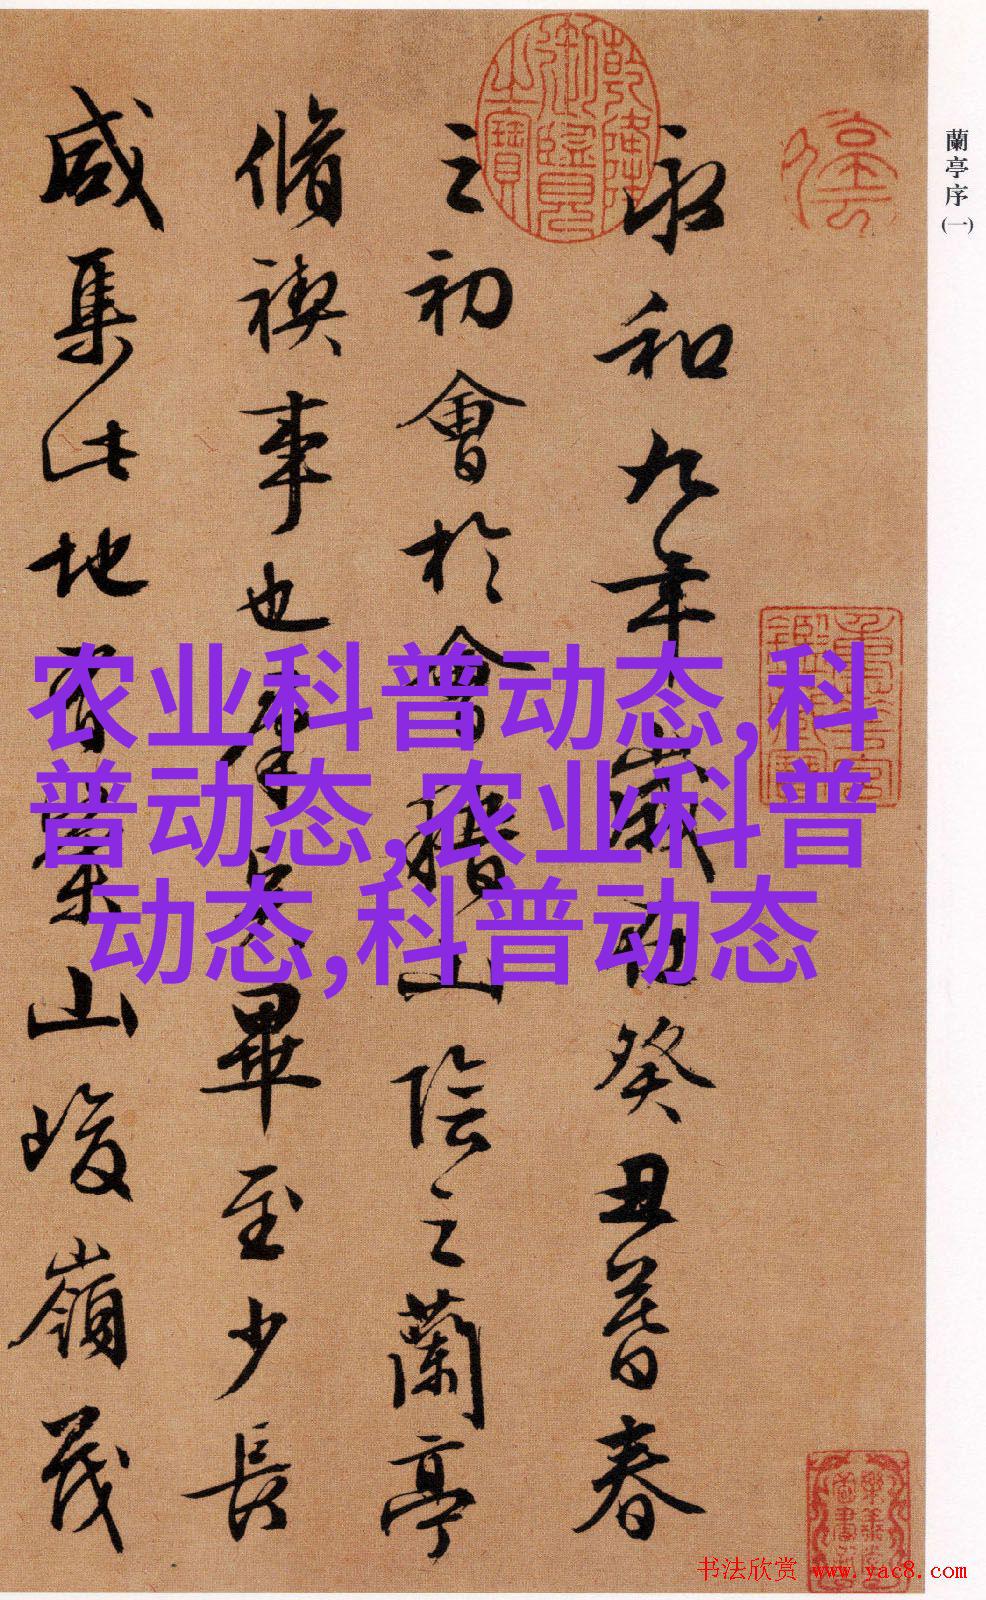 蘭亭序(一)
永和九年歲在癸丑暮春
之初會於會稽山陰之蘭亭
脩禊事也羣賢畢至少長
咸集此地有崇山峻嶺茂
乾隆御覽之寶
农业科普动态,科
普动态,农业科普
动态,科普动态
书法欣赏 www.yac8.com